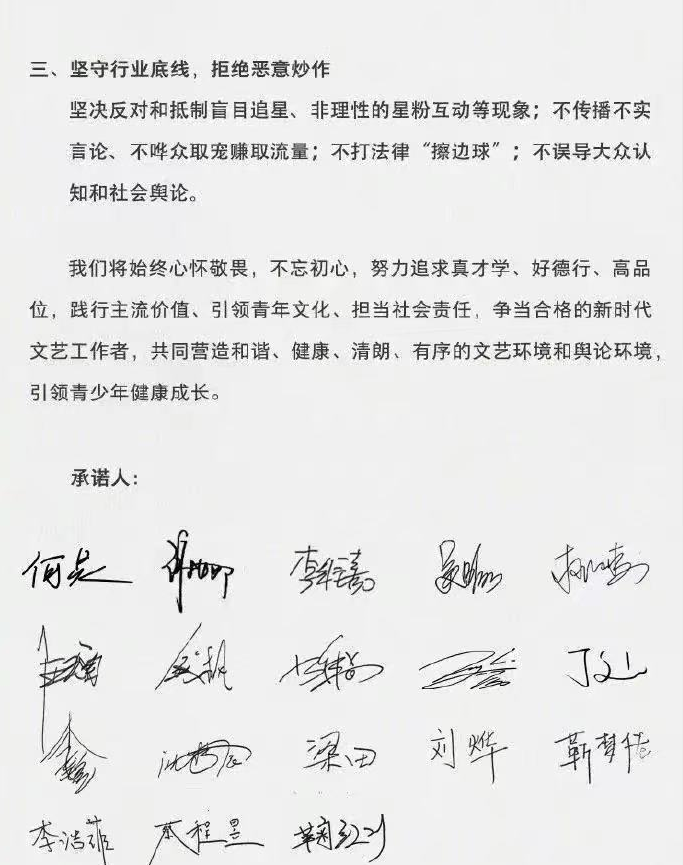 三、坚守行业底线，拒绝恶意炒作
坚决反对和抵制盲目追星、非理性的星粉互动等现象；不传播不实
言论、不哗众取宠赚取流量；不打法律“擦边球”；不误导大众认
知和社会舆论。
我们将始终心怀敬畏，不忘初心，努力追求真才学、好德行、高品
位，践行主流价值、引领青年文化、担当社会责任，争当合格的新时代
文艺工作者，共同营造和谐、健康、清朗、有序的文艺环境和舆论环境，
引领青少年健康成长。
承诺人：
何炅
梁田 刘烨 靳梦佳
李浩菲